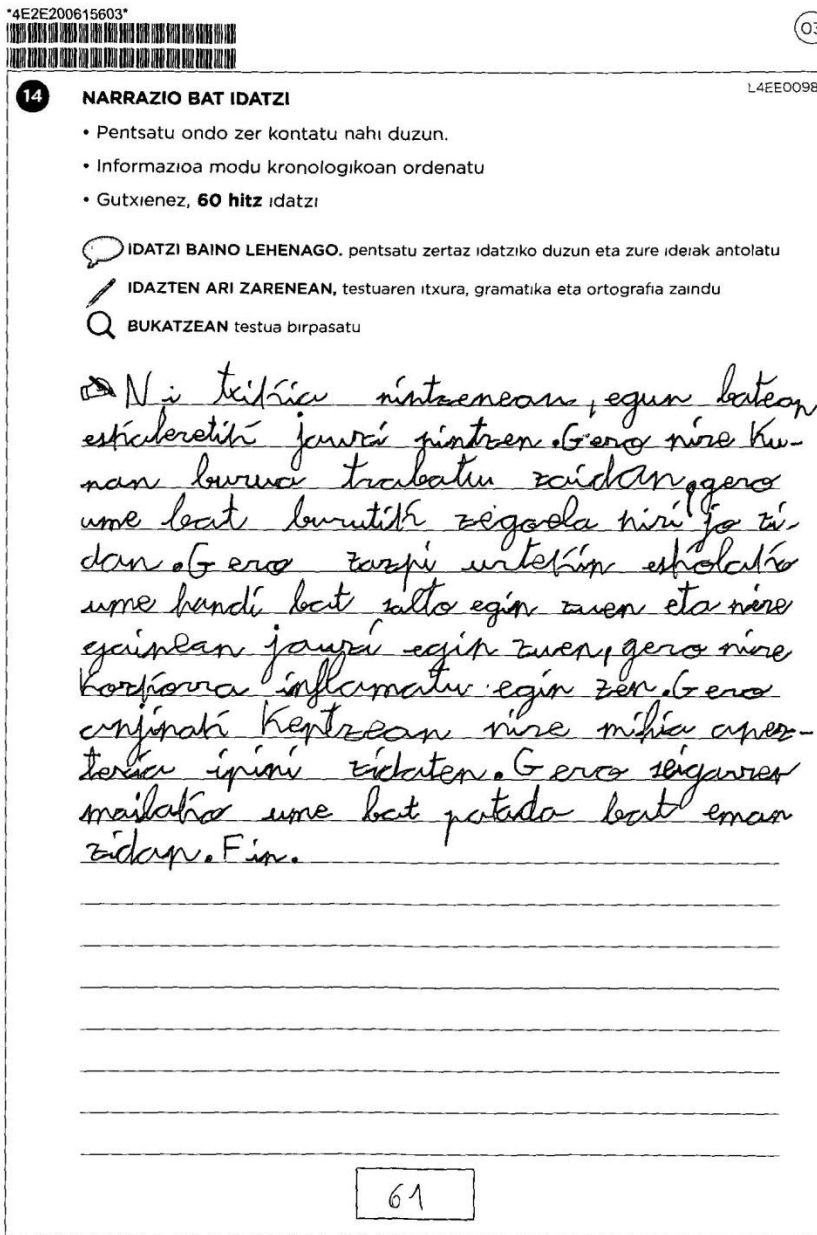 *4E2E200615603*
03
14
NARRAZIO BAT IDATZI
L4EE0098
• Pentsatu ondo zer kontatu nahi duzun.
• Informazioa modu kronologikoan ordenatu
• Gutxienez, 60 hitz idatzi
IDATZI BAINO LEHENAGO. pentsatu zertaz idatziko duzun eta zure ideiak antolatu
IDAZTEN ARI ZARENEAN, testuaren itxura, gramatika eta ortografia zaindu
BUKATZEAN testua birpasatu
Ni txikia nintzenean, egun batean
eskaleretik jauzi nintzen. Gero nire Ku-
nan burua trabatu zaidan, gero
ume bat burutik zegoela niri jo zi-
dan. Gero zazpi urtekin eskolako
ume handi bat salto egin zuen eta nire
gainean jauzi egin zuen, gero nire
Korkorra inflamatu egin zen. Gero
anjinak Kentzean nire mihia
ipini zidaten. Gero seigarren
mailako ume bat patada bat eman
zidan. Fin.
61